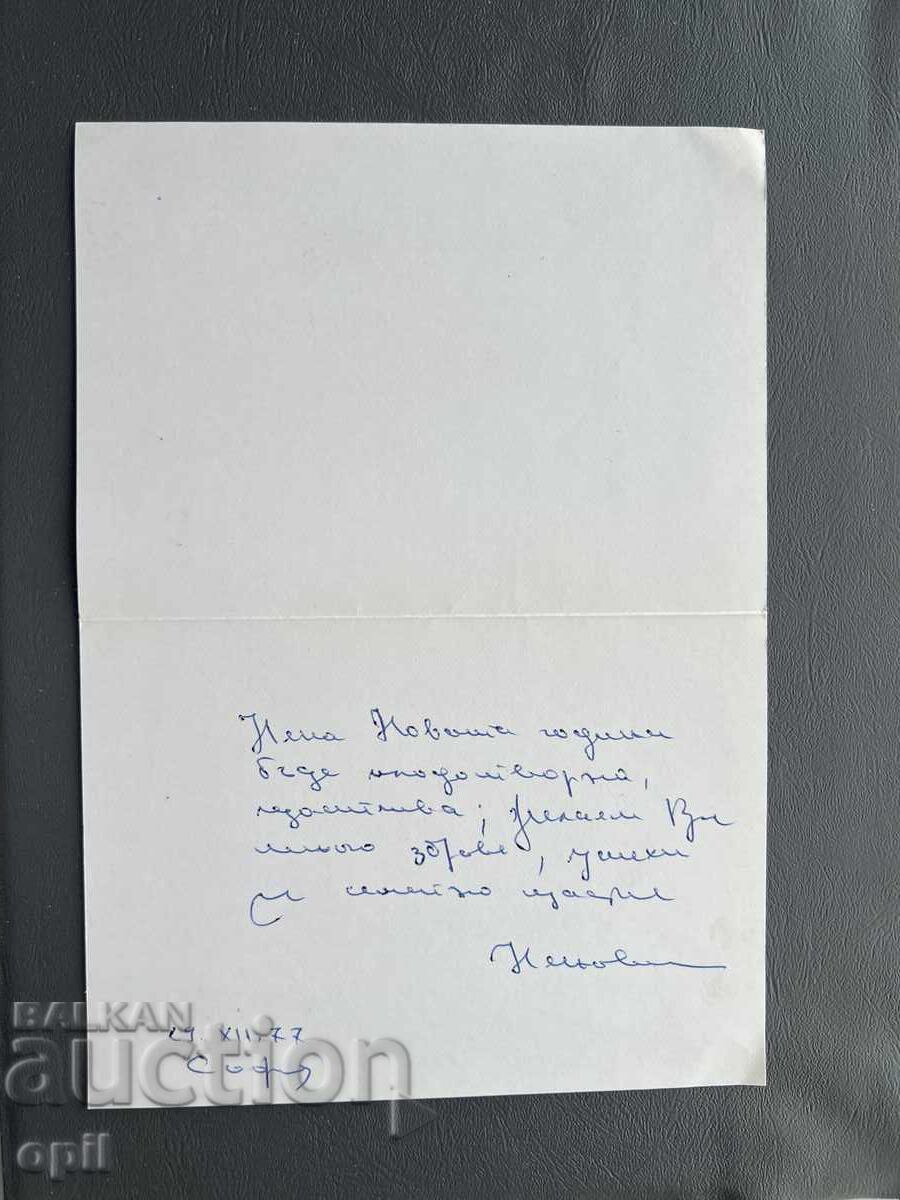 Нека Новата година
бъде плодотворна,
щастлива; Желаем Ви
много здраве, успехи
и семейно щастие
29.XII.77
София
BALKAN
auction
opil